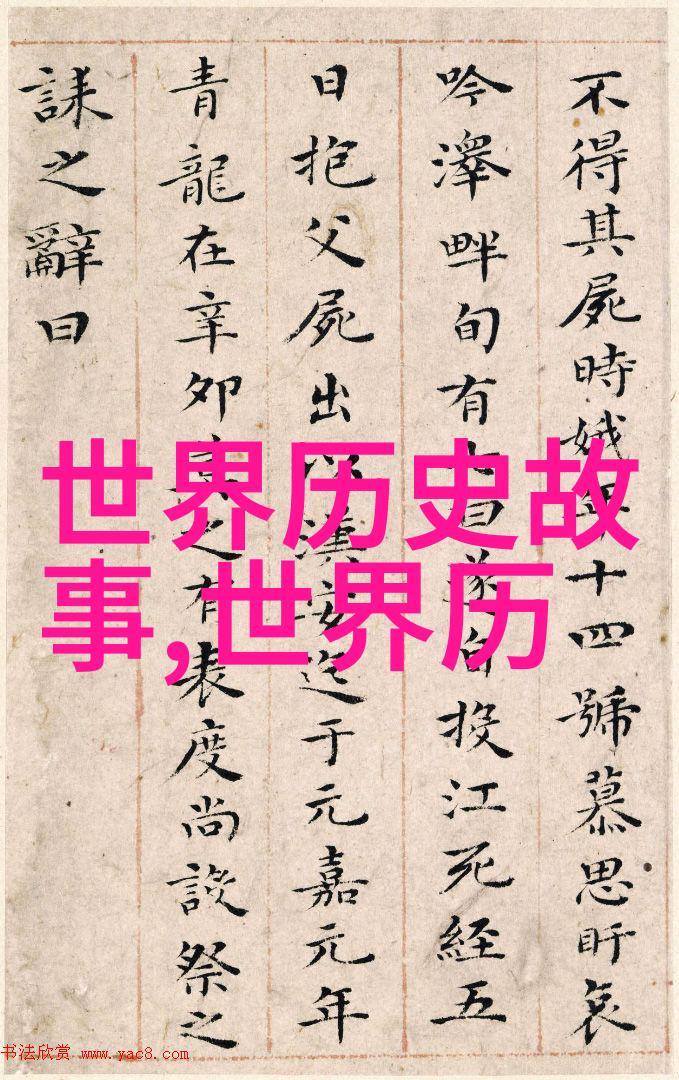 不得其屍時娥年十四號慕思盱哀
吟澤畔旬有七日遂自投江死經五
日抱父屍出以漢安迄于元嘉元年
青龍在辛卯莫之有表度尚設祭之
誄之辭曰
世界历史故
事,世界历
书法欣赏 www.yac8.com